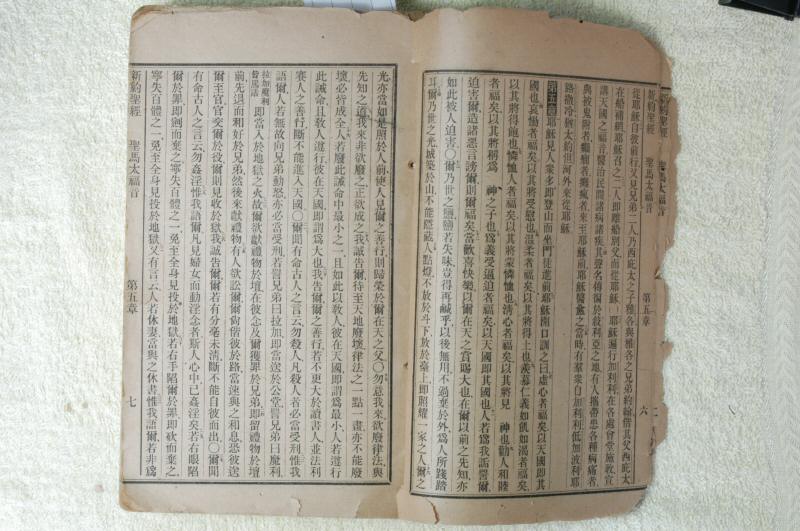 新約聖經 聖馬太福音 第五章 六
從耶穌自彼前行又見兄弟二人乃西庇太之子雅各與雅各之兄弟約翰偕其父西庇太
在船補網耶穌召之二人即離船別父而從耶穌 耶穌遍行加利利在各處會堂施教宣
講天國之福音醫治民間諸病諸疾其聲名傳徧於敘利亞之地有人攜帶患各種病痛者
與被鬼附者癲癇者癱瘋者來至耶穌前耶穌醫愈之當時有羣衆自加利利低加波利耶
路撒冷猶太約但河外來從耶穌
第五章 耶穌見人衆多即登山而坐門徒進前耶穌開口訓之曰虛心者福矣以天國即其
國也哀慟者福矣以其將受慰也溫柔者福矣以其將得土也羨慕仁義如飢如渴者福矣
以其將得飽也憐憫人者福矣以其將蒙憐憫也清心者福矣以其將見 神也勸人和睦
者福矣以其將稱爲 神之子也爲義受逼迫者福矣以天國即其國也人若爲我詬詈爾
迫害爾造諸惡言謗爾則爾福矣當歡喜快樂以爾在天之賞賜大也在爾以前之先知亦
如此被人迫害〇爾乃世之鹽鹽若失味豈得再鹹乎以後無用不過棄於外爲人所踐踏
耳爾乃世之光城築於山不能隱藏人點燈不放於斗下放於臺上即照耀一家之人爾之
光亦當如是照於人前使人見爾之善行則歸榮於爾在天之父〇勿意我來欲廢律法與
先知之道我來非欲廢之正欲成之我誠告爾待至天地廢壞律法之一點一畫亦不能廢
壞必皆成全人若廢此誡命中最小之一且如此以教人彼在天國即謂爲最小人若遵行
此誡命且教人遵行彼在天國即謂爲大也我告爾爾之善行若不更大於讀書人並法利
賽人之善行斷不能進入天國〇爾聞有命古人之言云勿殺人凡殺人者必當受刑惟我
語爾人若無故向兄弟動怒亦必當受刑若詈兄弟曰拉加即當送於公堂詈兄弟曰魔利
拉加魔利皆罵語 即當入於地獄之火故爾欲獻禮物於壇在彼念及爾獲罪於兄弟即留禮物於壇
前先退而和好於兄弟然後來獻禮物有人欲訟爾爾尙偕彼於路當速與之和息恐彼送
爾至官官交爾於役則見收於獄我誠告爾爾若有分毫未清斷不能自彼而出〇爾聞
有命古人之言云勿姦淫惟我語爾凡見婦女而動淫念者斯人心中已姦淫矣若右眼陷
爾於罪即剜而棄之寧失百體之一免至全身見投於地獄若右手陷爾於罪即砍而棄之
寧失百體之一免至全身見投於地獄〇又有言云人若休妻當與之休書惟我語爾若非爲
新約聖經 聖馬太福音 第五章 七